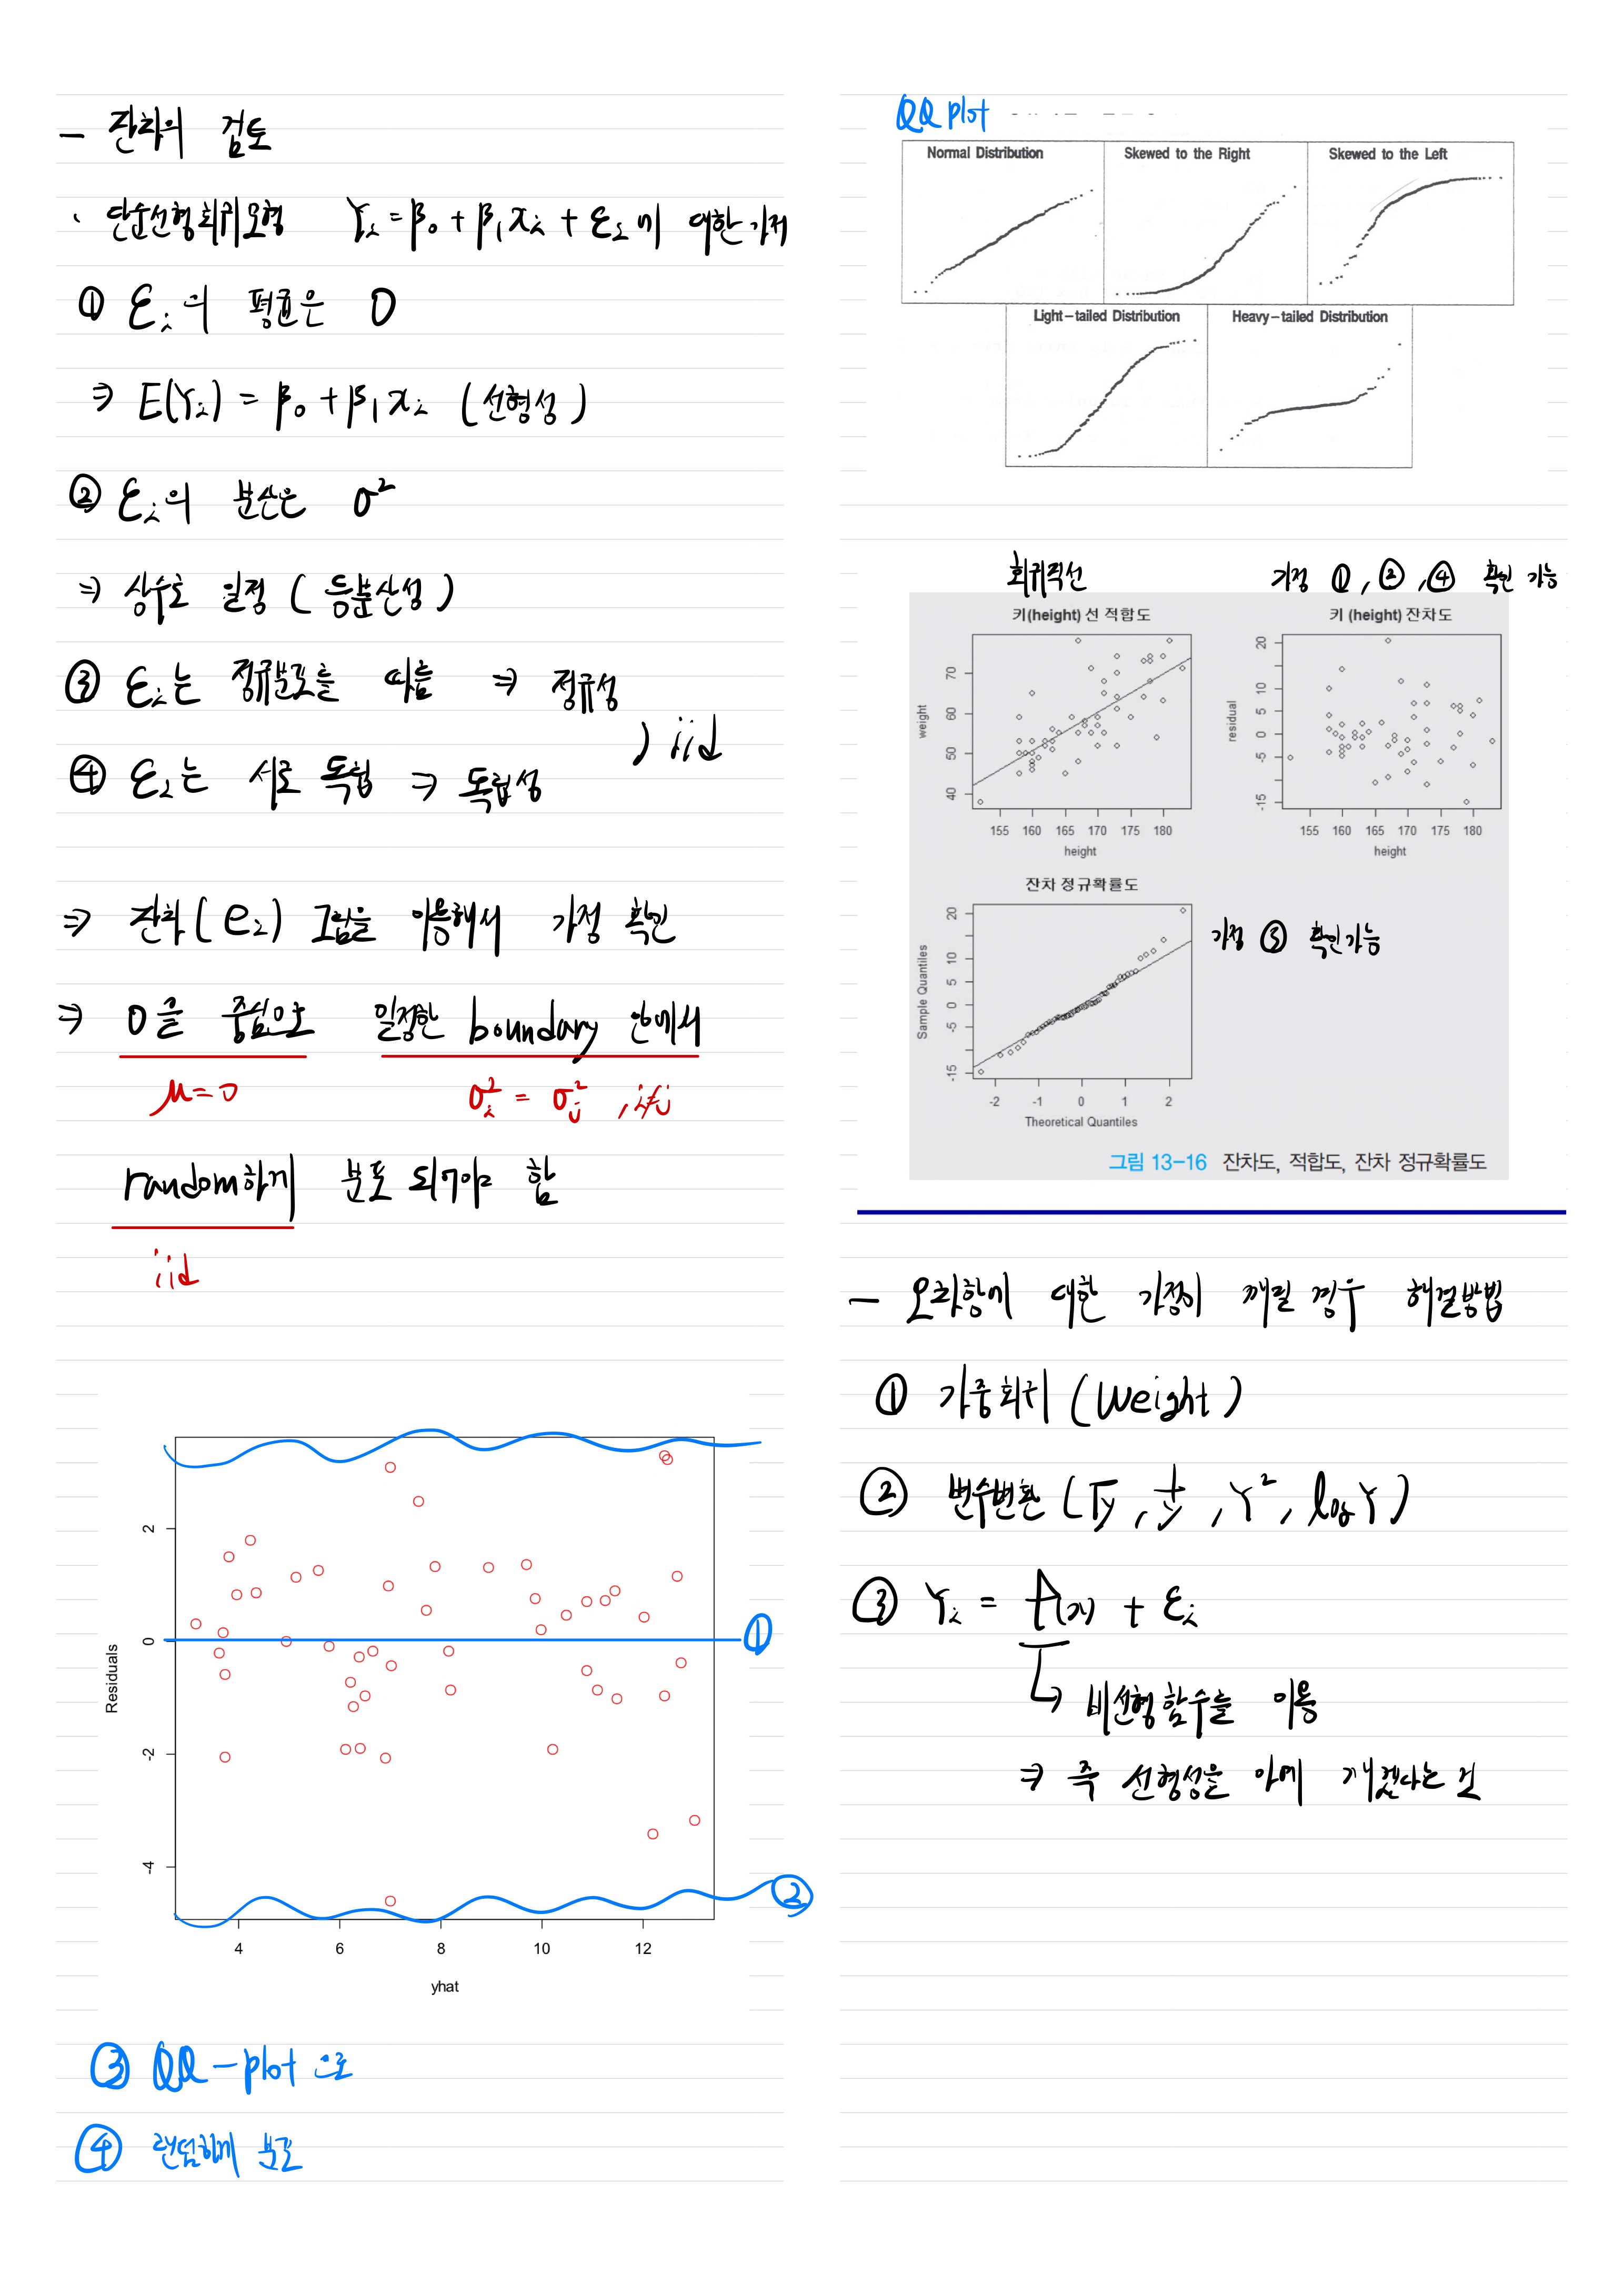 - 잔차의 검토
· 단순선형회귀모형 Yᵢ = β₀ + β₁xᵢ + εᵢ에 대한 가정
① εᵢ의 평균은 0
⇒ E(Yᵢ) = β₀ + β₁xᵢ (선형성)
② εᵢ의 분산은 σ²
⇒ 상수로 일정 (등분산성)
③ εᵢ는 정규분포를 따름 ⇒ 정규성
) iid
④ εᵢ는 서로 독립 ⇒ 독립성
⇒ 잔차(eᵢ) 그림을 이용해서 가정 확인
⇒ 0을 중심으로 일정한 boundary 안에서
μ=0 σᵢ² = σⱼ² , i≠j
random하게 분포 되어야 함
iid
2
0
-2
-4
Residuals
4 6 8 10 12
yhat
①
②
③ QQ-plot으로
④ 랜덤하게 분포
QQ plot
Normal Distribution Skewed to the Right Skewed to the Left
Light-tailed Distribution Heavy-tailed Distribution
회귀직선 가정 ①, ②, ④ 확인 가능
키(height) 선 적합도 키 (height) 잔차도
weight
40 50 60 70
155 160 165 170 175 180
height
residual
-15 -5 0 5 10 20
155 160 165 170 175 180
height
잔차 정규확률도
Sample Quantiles
-15 -5 0 5 10 20
-2 -1 0 1 2
Theoretical Quantiles
가정 ③ 확인가능
그림 13-16 잔차도, 적합도, 잔차 정규확률도
- 오차항에 대한 가정이 깨질 경우 해결방법
① 가중회귀 (Weight)
② 변수변환 (√y, 1/y, Y², log Y)
③ Yᵢ = f(x) + εᵢ
↳ 비선형함수를 이용
⇒ 즉 선형성을 아예 깨겠다는 것